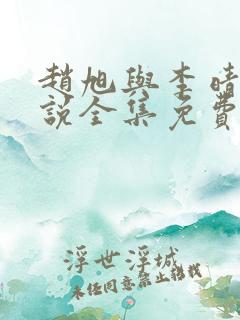 趙旭與李晴
說全集免費
浮世浮城
未經同意禁止轉載